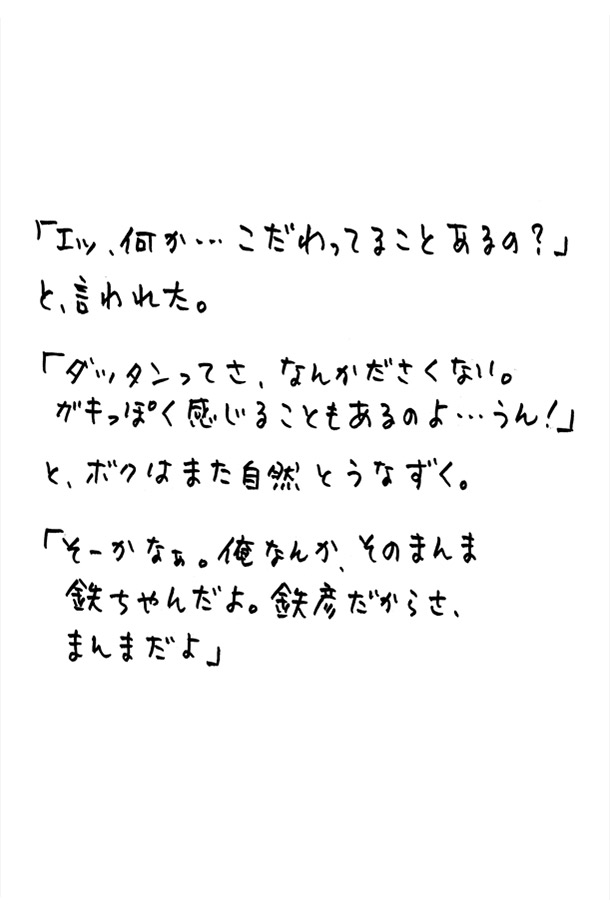 「エッ、何か…こだわってることあるの?」
と、言われた。
「ダッタンってさ、なんかださくない。
ガキっぽく感じることもあるのよ…うん!」
と、ボクはまた自然とうなずく。
「そーかなぁ。俺なんか、そのまんま
鉄ちゃんだよ。鉄彦だからさ、
まんまだよ」